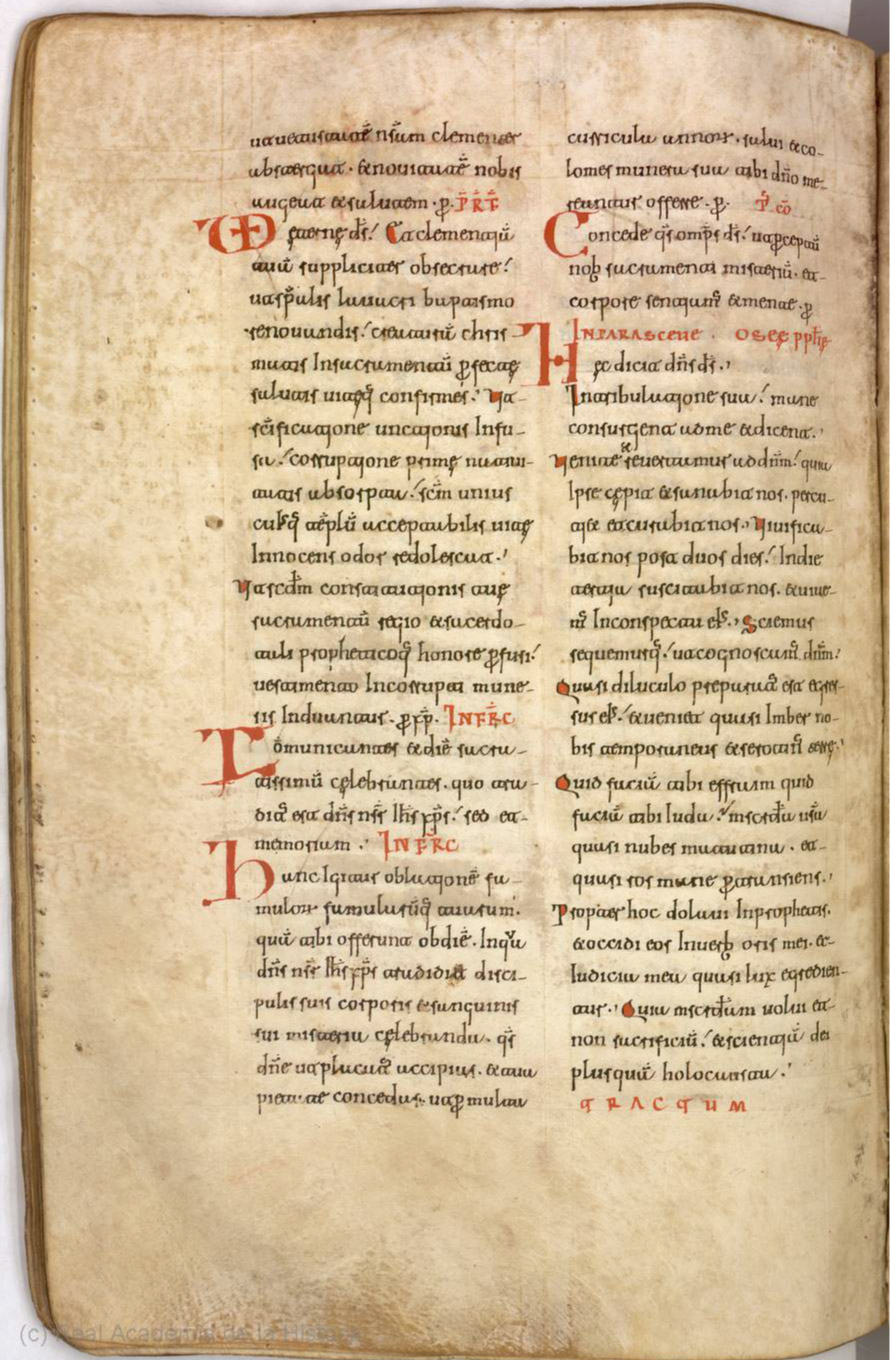 uetustatē nr̄am clementer
abstergat · & nouitatē nobis
augeat & salutem · p̱. P̄R̄F̄
VD eternę ds̄. Et clementiā
tuā suppliciter obsecrare.
ut sp̄alis lauacri baptismo
renouandis. creaturā chris-
matis In sacramentū p̱fectę
salutis uitęq̄ confirmes. Ut
sc̄ificatione unctionis Infu-
sa. corruptione primę natiui-
tatis absorpta. sc̄m unius
cui'sq̄ tēplū acceptabilis uitę
Innocens odor redolescat.
Ut scd̄m constitutionis tuę
sacramentū regio & sacerdo-
tali propheticoq̄ honore p̱fusi.
uestimento Incorrupti mune-
ris Induantur. p̱ xp̄. INFR̄C
Cōmunicantes & diē sacra-
tissimū cęlebrantes. quo tra-
dit' est dn̄s nsr̄ Ih̄s xp̄s. sed et
memoriam. INFR̄C
Hanc Igitur oblationē fa-
mulor famularūq̄ tuarum.
quā tibi offerunt ob diē. In qua
dn̄s nsr̄ Ih̄s xp̄s tradidit disci-
pulis suis corporis & sanguinis
sui misteria cęlebranda. qs̄
dn̄e ut placat' accipias. & tua
pietate concedas. ut p̱ multa
curricula annor. salui & co-
lomes munera sua tibi dn̄o me-
reantur offerre. p̱. P' cō
Concede qs̄ omp̄s ds̄. ut p̱ceptū
nob̄ sacramenti misteriū. et
corpore sentiam' & mente. p̱
IN PARASCEUE. OSEĘ pphę
Hęc dicit dn̄s ds̄.
In tribulatione sua. mane
consurgent ad me & dicent.
Uenite & reuertamur ad dn̄m. quia
Ipse cępit & sanabit nos. percu-
tiet et curabit nos. Uiuifica-
bit nos post duos dies. In die
tertia suscitabit nos. & uiue-
m' In conspectu ei's. Sciemus
sequemurq̄. ut cognoscam' dn̄m.
Quasi diluculo preparat' est egres-
sus ei's. & ueniet quasi Imber no-
bis temporaneus & serotin' terrę.
Quid faciā tibi effraim quid
faciā tibi Iuda. misc̄dia ur̄a
quasi nubes matutina. et
quasi ros mane p̱transiens.
Propter hoc dolaui In prophetis.
& occidi eos In uerb̄ oris mei. et
Iudicia mea quasi lux egredien-
tur. Quia misc̄diam uolui et
non sacrificiū. & scientiā dei
plusquā holocausta.
TRACTUM
(c) Real Academia de la Historia